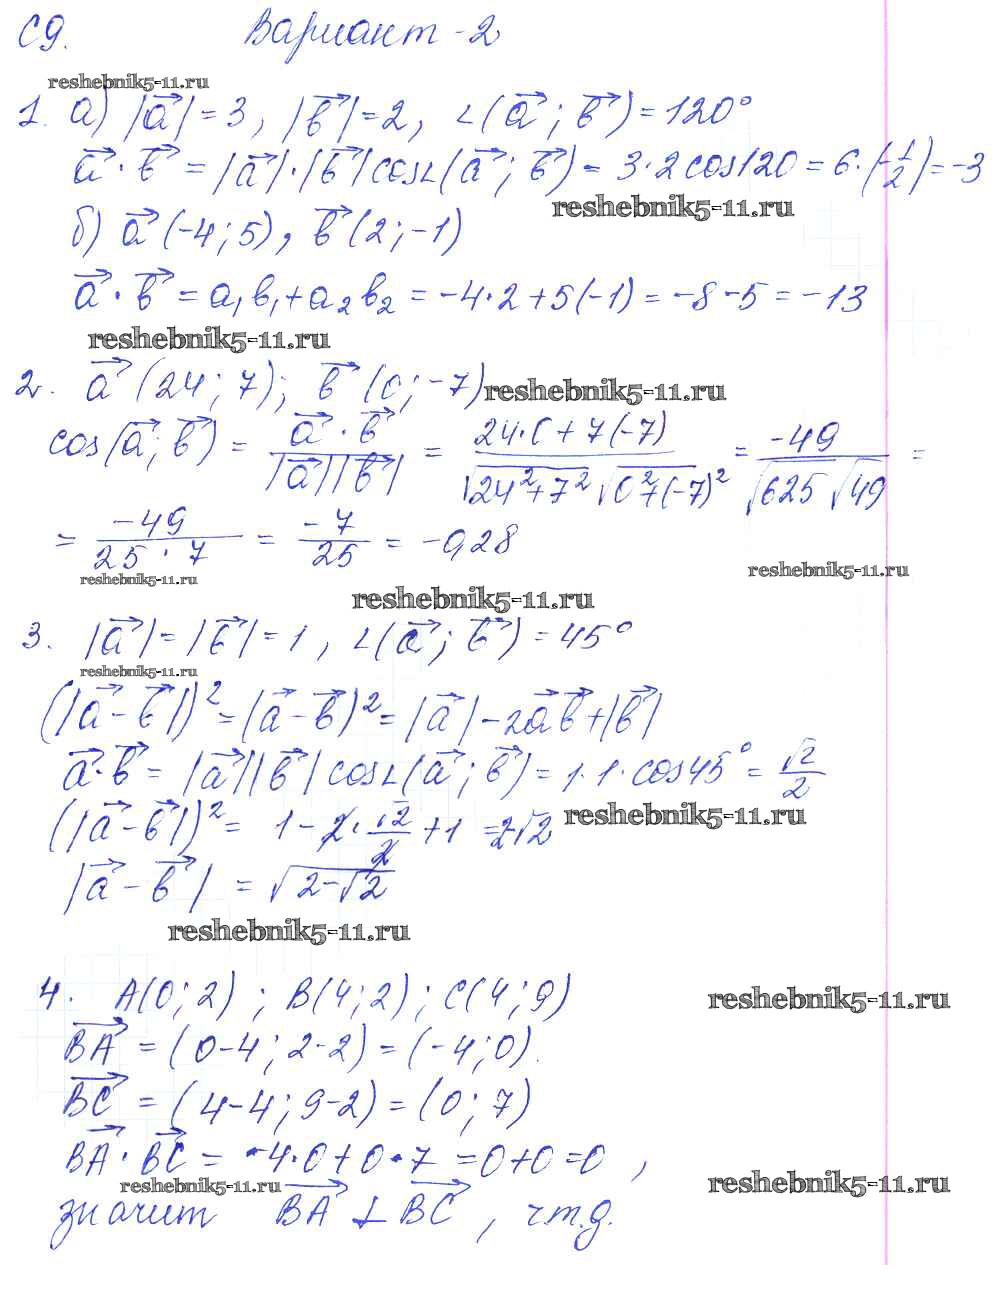 С9. Вариант-2
reshebnik5-11.ru
1. а) |a⃗| = 3, |b⃗| = 2, ∠(a⃗; b⃗) = 120°
a⃗ · b⃗ = |a⃗|·|b⃗| cos∠(a⃗; b⃗) = 3·2 cos120 = 6·(-1/2) = -3
reshebnik5-11.ru
б) a⃗ (-4; 5), b⃗ (2; -1)
a⃗ · b⃗ = a₁b₁ + a₂b₂ = -4·2 + 5(-1) = -8 - 5 = -13
reshebnik5-11.ru
2. a⃗ (24; 7); b⃗ (0; -7)
reshebnik5-11.ru
cos(a⃗; b⃗) = (a⃗ · b⃗)/(|a⃗||b⃗|) = (24·0 + 7(-7))/(√(24²+7²) √(0²+(-7)²)) = -49/(√625 √49) =
= -49/(25·7) = -7/25 = -0,28
reshebnik5-11.ru
reshebnik5-11.ru
reshebnik5-11.ru
3. |a⃗| = |b⃗| = 1, ∠(a⃗; b⃗) = 45°
reshebnik5-11.ru
(|a⃗ - b⃗|)² = (a⃗ - b⃗)² = |a⃗| - 2a⃗b⃗ + |b⃗|
a⃗·b⃗ = |a⃗||b⃗| cos∠(a⃗; b⃗) = 1·1·cos45° = √2/2
(|a⃗ - b⃗|)² = 1 - 2·√2/2 + 1 = 2-√2
reshebnik5-11.ru
|a⃗ - b⃗| = √(2-√2)
reshebnik5-11.ru
4. A(0; 2); B(4; 2); C(4; 9)
reshebnik5-11.ru
BA⃗ = (0-4; 2-2) = (-4; 0).
BC⃗ = (4-4; 9-2) = (0; 7)
BA⃗ · BC⃗ = -4·0 + 0·7 = 0 + 0 = 0,
reshebnik5-11.ru
reshebnik5-11.ru
значит BA⃗ ⊥ BC⃗, ч.т.д.